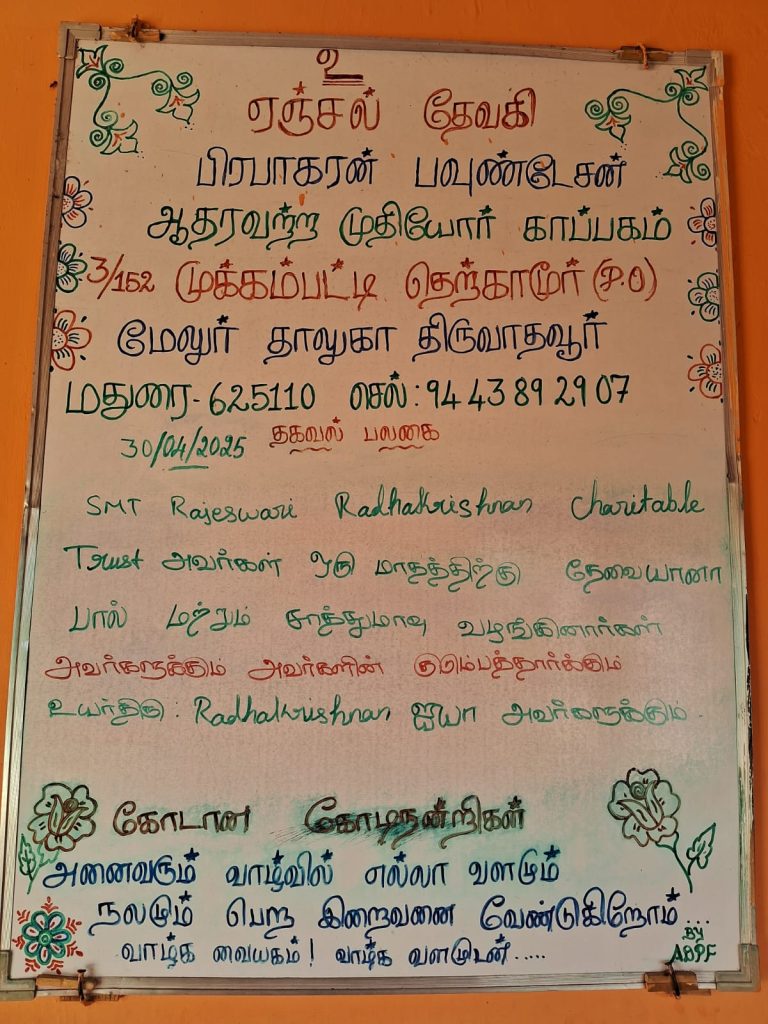 உ
ஏஞ்சல் தேவகி
பிரபாகரன் பவுண்டேசன்
ஆதரவற்ற முதியோர் காப்பகம்
3/152 முக்கம்பட்டி தெற்காமூர் (P.O)
மேலுர் தாலுகா திருவாதவூர்
மதுரை - 625110 செல் : 94 43 89 29 07
30/04/2025 தகவல் பலகை
SMT Rajeswari Radhakrishnan Charitable
Trust அவர்கள் ஒரு மாதத்திற்கு தேவையானா
பால் மற்றும் சாத்துமாவு வழங்கினார்கள்
அவர்களுக்கும் அவர்களின் குடும்பத்தார்க்கும்
உயர்திரு : Radhakrishnan ஐயா அவர்களுக்கும்.
கோடான கோடிநன்றிகள்
அனைவரும் வாழ்வில் எல்லா வளமும்
நலமும் பெற இறைவனை வேண்டுகிறோம்...
வாழ்க வையகம் ! வாழ்க வளமுடன்.....
BY
ADPF